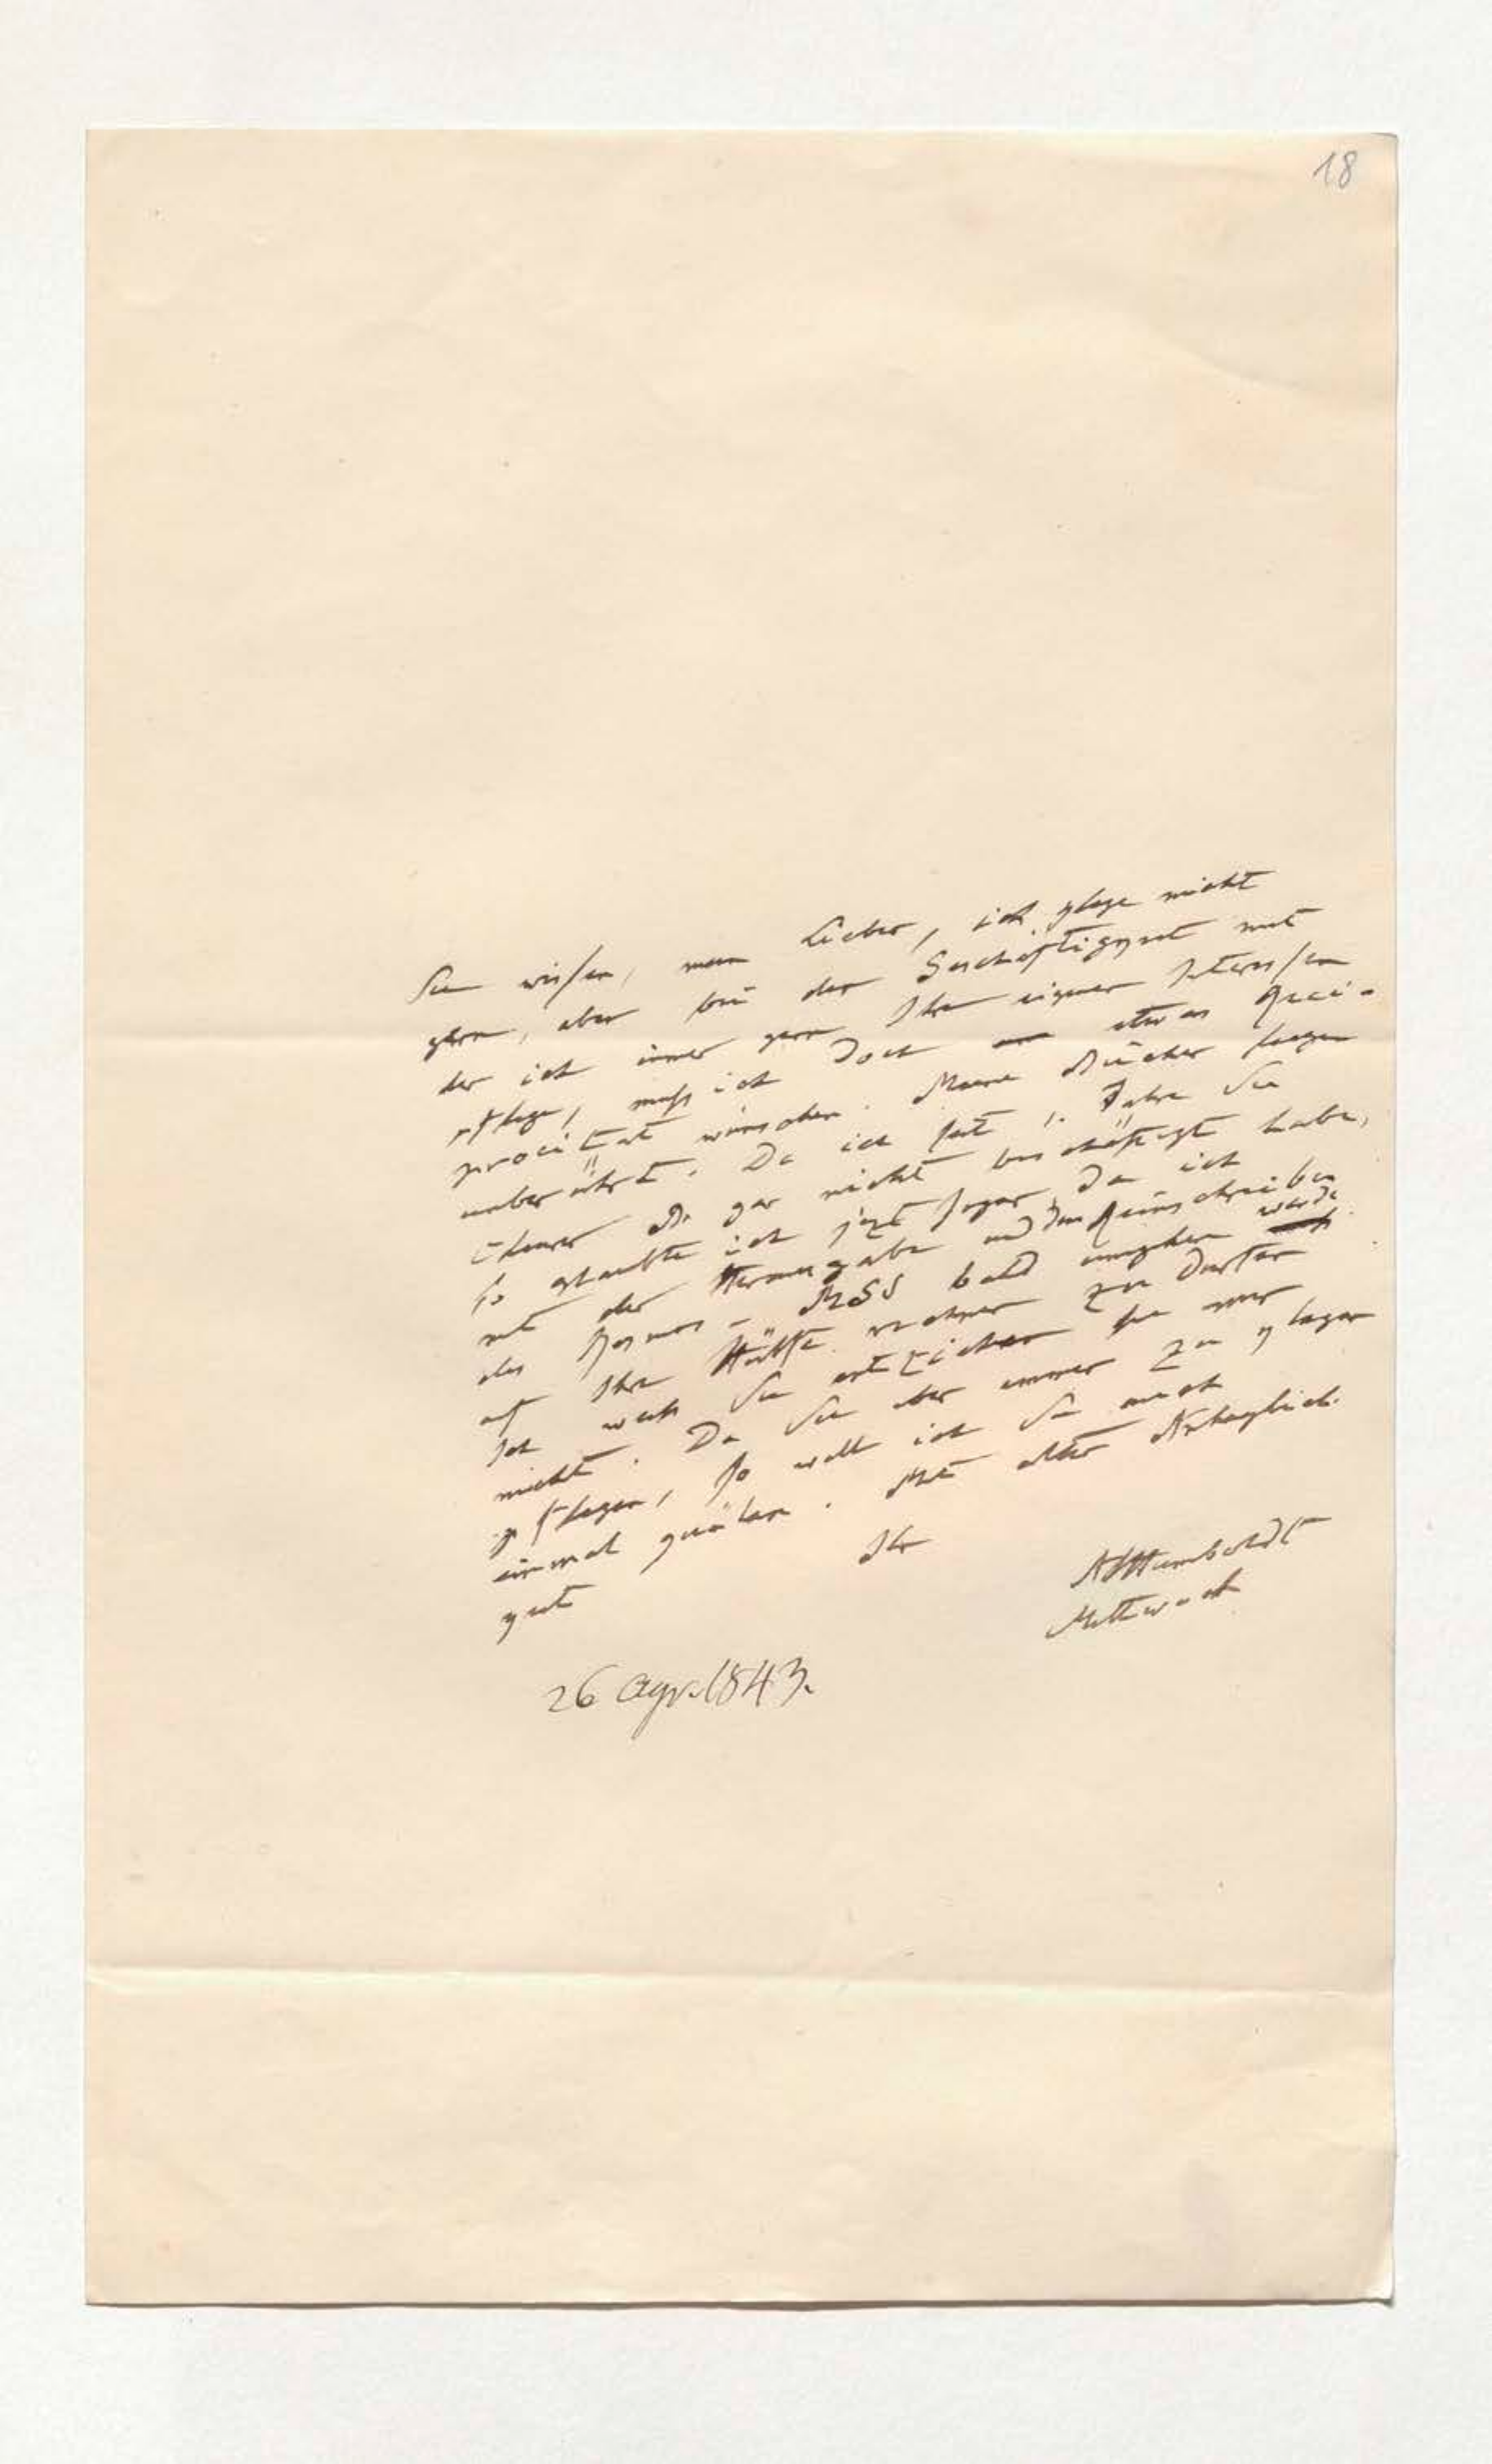 18
Sie wissen, mein Lieber, ich plage nicht
gern, aber bei der Geschäftigkeit mit
der ich immer gern Ihre eigenen Interessen
pflege, muß ich doch etwas Reci-
procität wünschen. Meine Bücher liegen
unberührt. Da ich seit Jahre Sie
theurer gar nicht beschäftigt habe,
so glaubte ich jezt sogar, da ich
mit der Herausgabe und dem Reinschreiben
des Kosmos - MSS bald umgehen werde
auf Ihre Hülfe rechnen zu dürfen
Ich weiß Sie entziehen sie mir
nicht. Da Sie aber immer zu plagen
pflegen, so will ich Sie auch
einmal quälen. Mit alter Anhänglichk.
gut
Ihr
AHumboldt
Mittwoch
26 Apr. 1843.